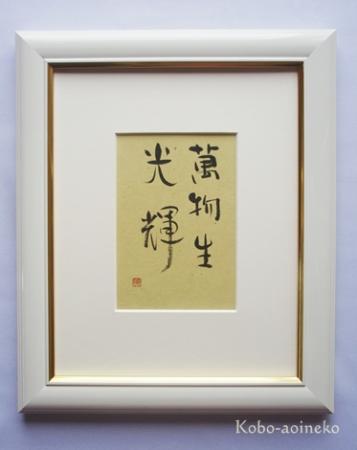 萬物生
光輝
Kobo-aoineko